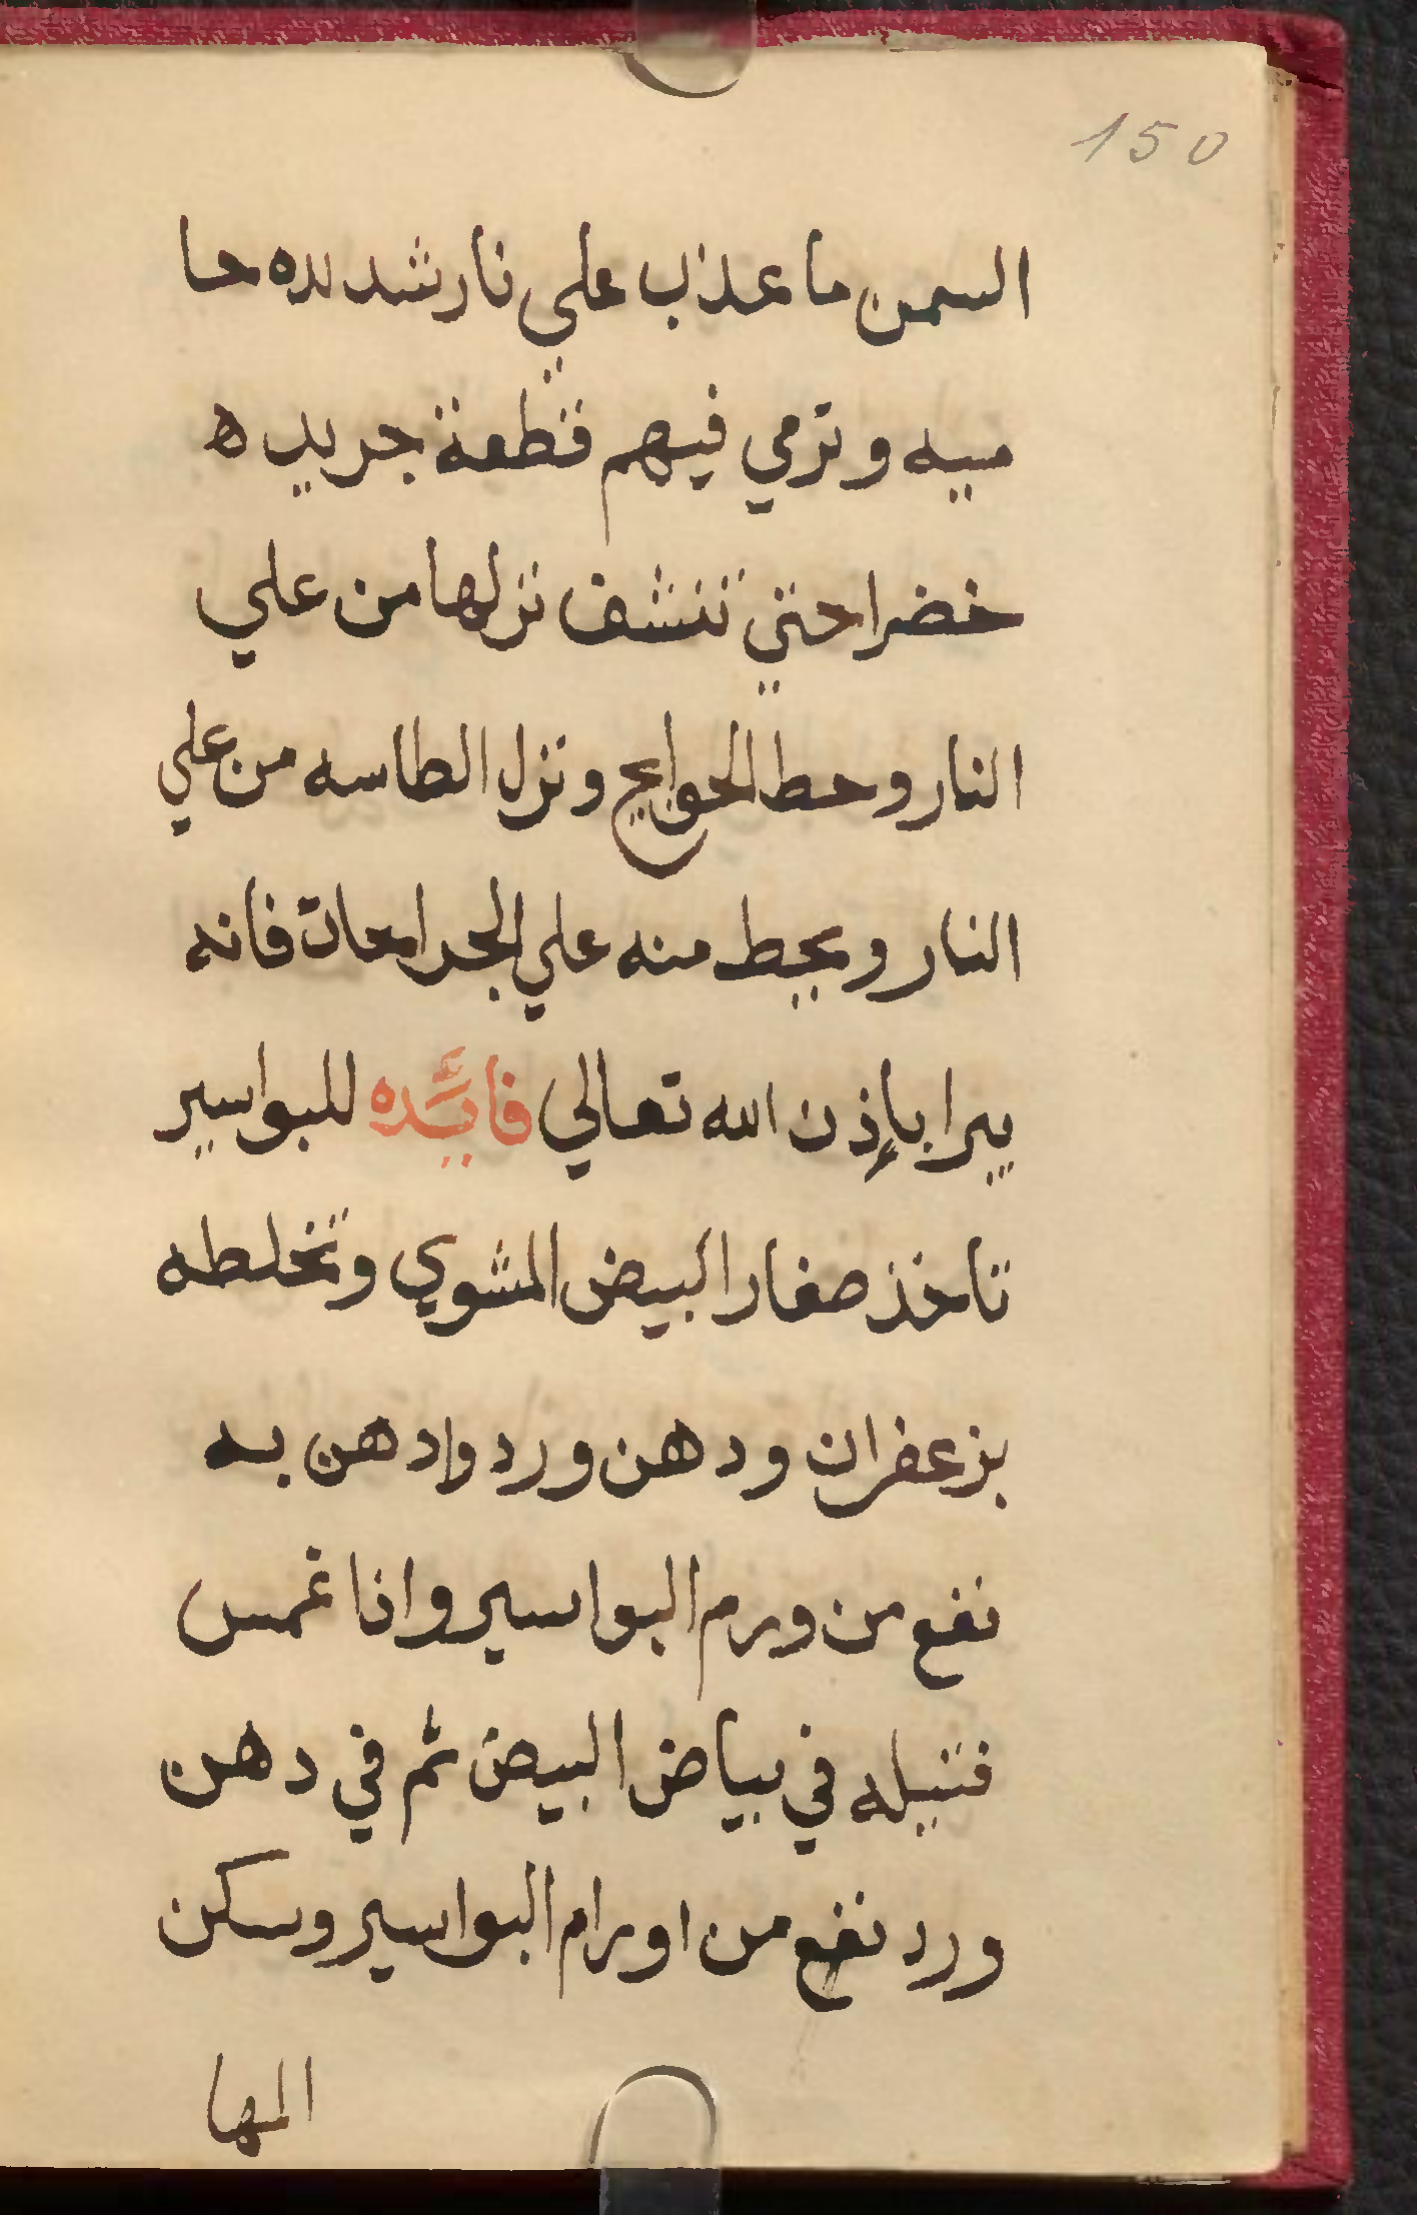 150
السمن ما عذب علي نار شديده حا
ميه وترمي فيهم قطعة جريده
خضرا حتي تنشف نزلها من علي
النار وحط الحوايج ونزل الطاسه من علي
النار ويحط منه علي الجراحات فانه
يبرا بإذن الله تعالي فائده للبواسير
تاخذ صفار البيض المشوي وتخلطه
بزعفران ودهن ورد وادهن به
نفع من ورم البواسير وانا غمس
فتيله في بياض البيض ثم في دهن
ورد نفع من اورام البواسير وسكن
المها